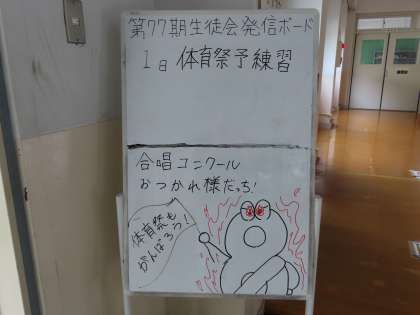 第77期生徒会発信ボード
1日 体育祭予練習
合唱コンクール
おつかれ様だっち!
体育祭も
がんばろっ!